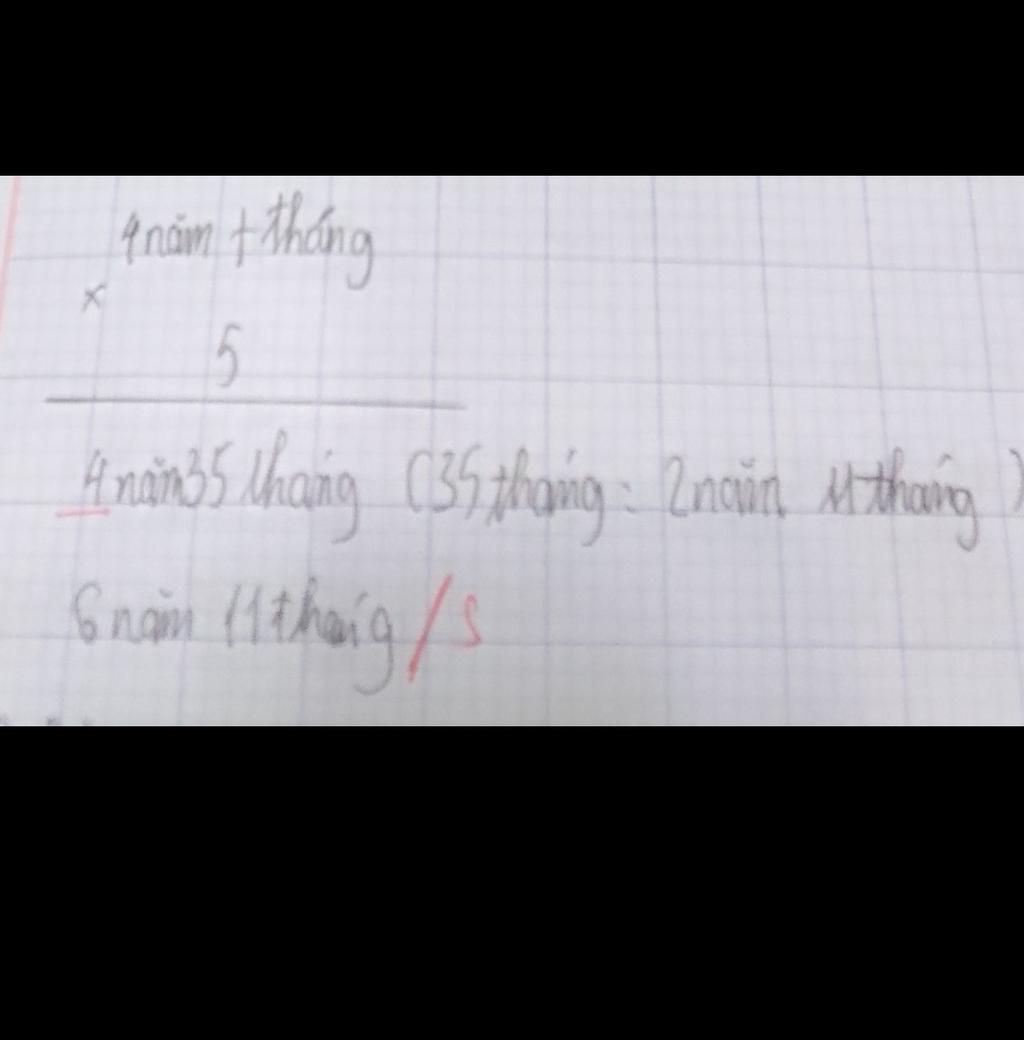 4 năm 7 tháng
×
5
4 năm 35 tháng (35 tháng = 2 năm 11 tháng)
6 năm 11 tháng / S